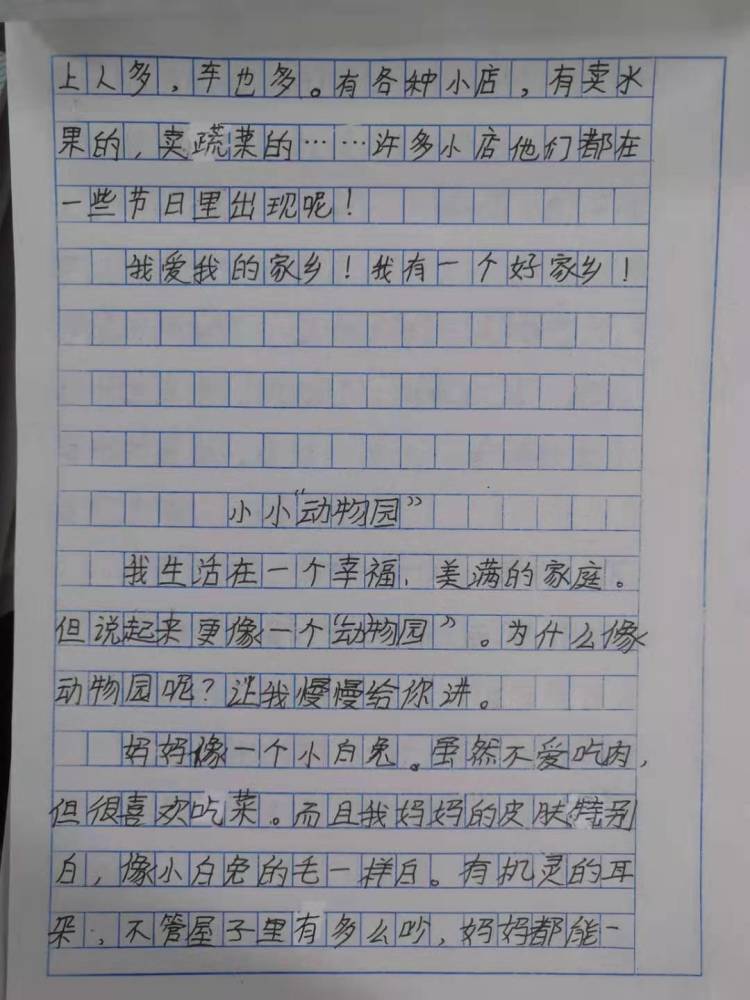 上人多，车也多。有各种小店，有卖水
果的，卖蔬菜的……许多小店他们都在
一些节日里出现呢！
我爱我的家乡！我有一个好家乡！
小小“动物园”
我生活在一个幸福、美满的家庭。
但说起来更像一个“动物园”。为什么像
动物园呢？让我慢慢给你讲。
妈妈像一个小白兔。虽然不爱吃肉，
但很喜欢吃菜。而且我妈妈的皮肤特别
白，像小白兔的毛一样白。有机灵的耳
朵，不管屋子里有多么吵，妈妈都能一